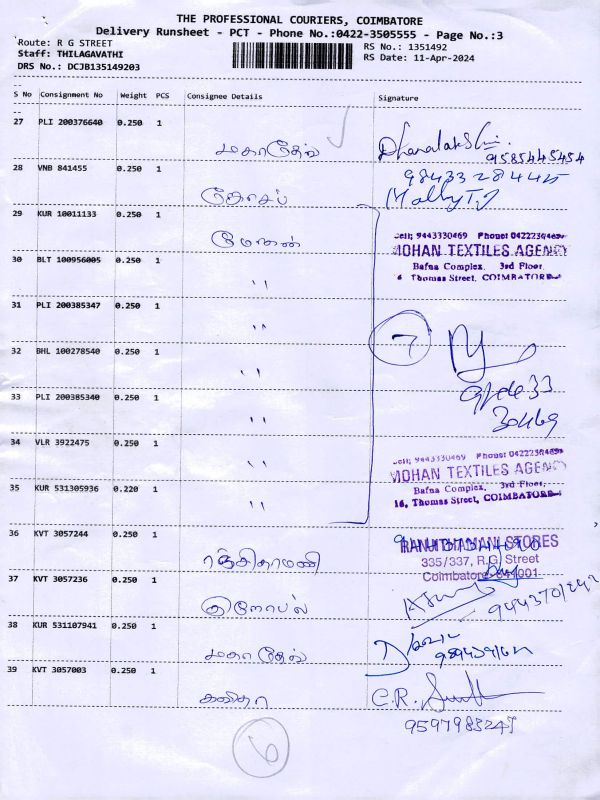 THE PROFESSIONAL COURIERS, COIMBATORE
Delivery Runsheet - PCT - Phone No.:0422-3505555 - Page No.:3
Route: R G STREET
RS No.: 1351492
Staff: THILAGAVATHI
RS Date: 11-Apr-2024
DRS No.: DCJB135149203
S No Consignment No Weight PCS Consignee Details Signature
27 PLI 200376640 0.250 1 மகாதேவ்
9585445454
28 VNB 841455 0.250 1 ஜோசப்
29 KUR 10011133 0.250 1 மோகன்
Cell: 9443330469 Phone: 0422230469
MOHAN TEXTILES AGENCY
Bafna Complex, 3rd Floor,
Thomas Street, COIMBATORE
30 BLT 100956005 0.250 1 "
31 PLI 200385347 0.250 1 "
7
32 BHL 100278540 0.250 1 "
33 PLI 200385340 0.250 1 "
30469
34 VLR 3922475 0.250 1 "
Cell: 9443330469 Phone: 0422230469
MOHAN TEXTILES AGENCY
Bafna Complex, 3rd Floor,
16, Thomas Street, COIMBATORE
35 KUR 531305936 0.220 1 "
36 KVT 3057244 0.250 1 ரஞ்சிதாமணி
RANJITHAMANI STORES
335/337, R.G. Street
Coimbatore - 641001
37 KVT 3057236 0.250 1 குளோபல்
38 KUR 531107941 0.250 1 மகாதேவ்
39 KVT 3057003 0.250 1 கவிதா
C.R.
6